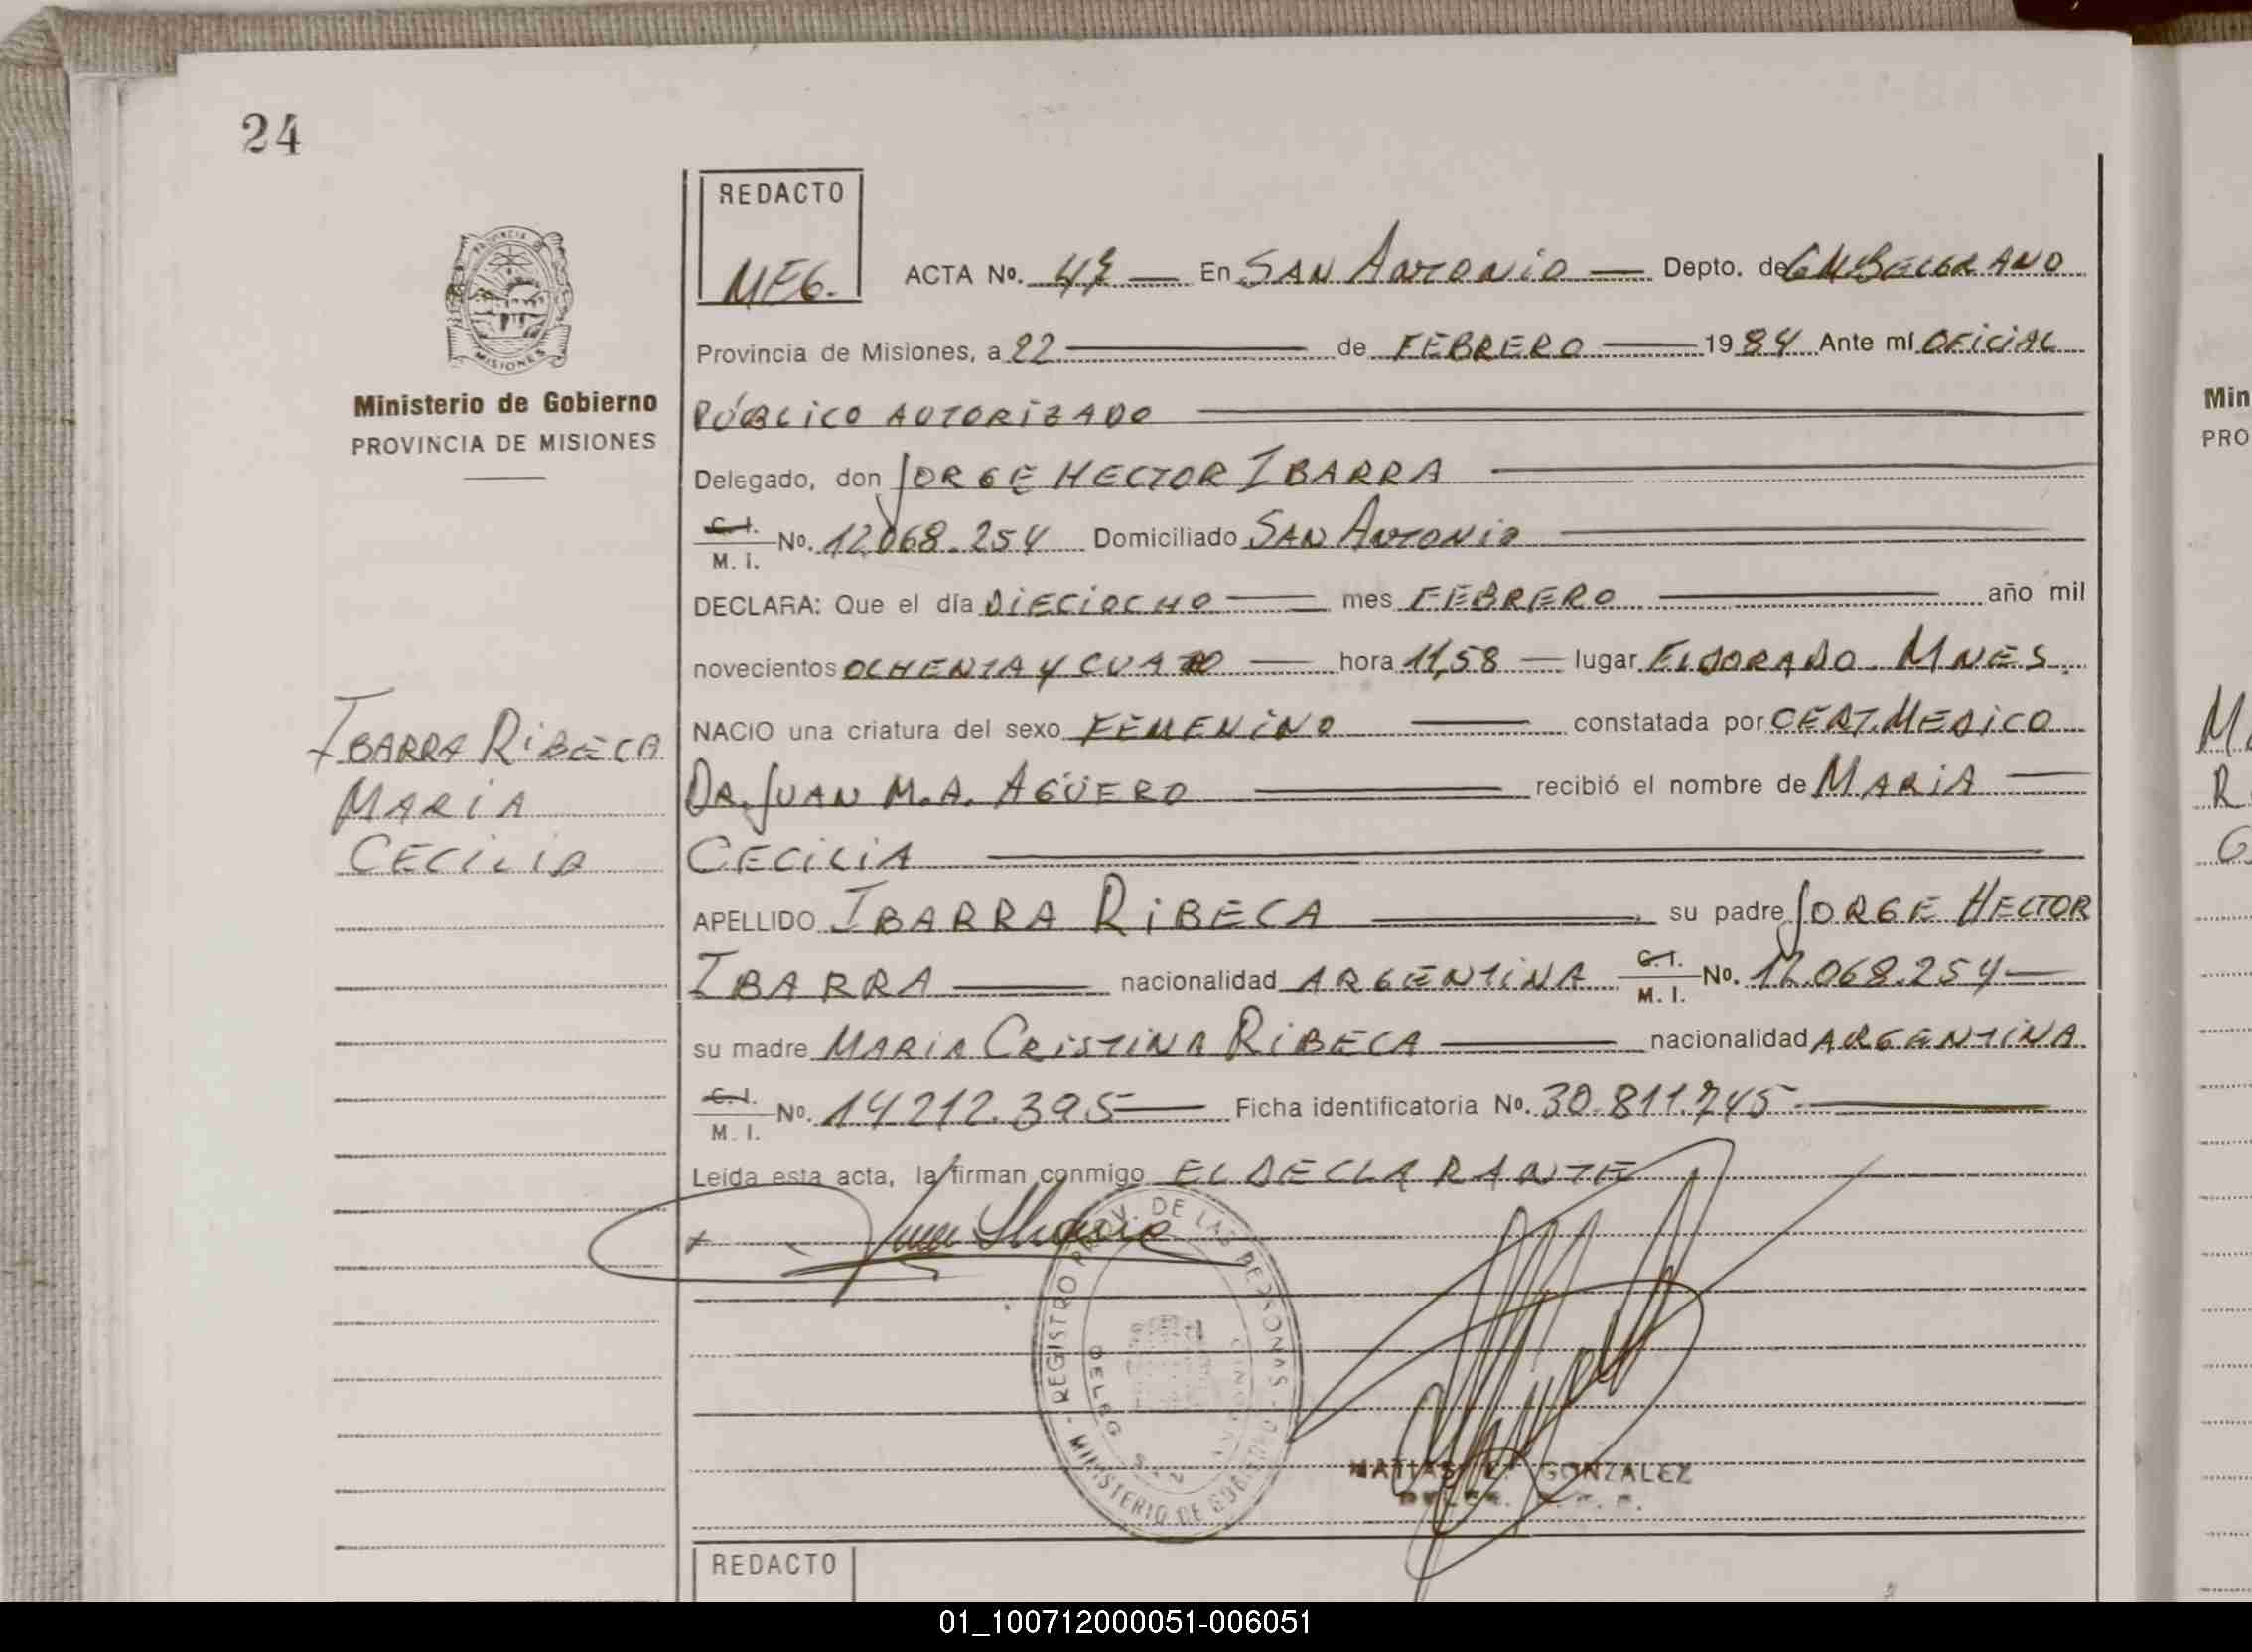 24
REDACTO
MEG.
ACTA No. 47 En SAN ANTONIO Depto. de GM BELGRANO
PROVINCIA DE
MISIONES
Ministerio de Gobierno
PROVINCIA DE MISIONES
Provincia de Misiones, a 22 de FEBRERO 1984 Ante mí OFICIAL
PÚBLICO AUTORIZADO
Delegado, don JORGE HECTOR IBARRA
C.I. M.I. No. 12.068.254 Domiciliado SAN ANTONIO
DECLARA: Que el día DIECIOCHO mes FEBRERO año mil
novecientos OCHENTA Y CUATRO hora 11,58 lugar ELDORADO. MNES.
NACIO una criatura del sexo FEMENINO constatada por CERT. MEDICO
DR. JUAN M.A. AGÜERO recibió el nombre de MARIA
CECILIA
IBARRA RIBECA
MARIA
CECILIA
APELLIDO IBARRA RIBECA, su padre JORGE HECTOR
IBARRA nacionalidad ARGENTINA C.I. M.I. No. 12.068.254
su madre MARIA CRISTINA RIBECA nacionalidad ARGENTINA
C.I. M.I. No. 14212.395 Ficha identificatoria No. 30.811.745
Leída esta acta, la firman conmigo EL DECLARANTE
REGISTRO PROV. DE LAS PERSONAS - MINISTERIO DE GOBIERNO
DELEG. SAN
MATIAS GONZALEZ
REDACTO
Min
PRO
01_100712000051-006051